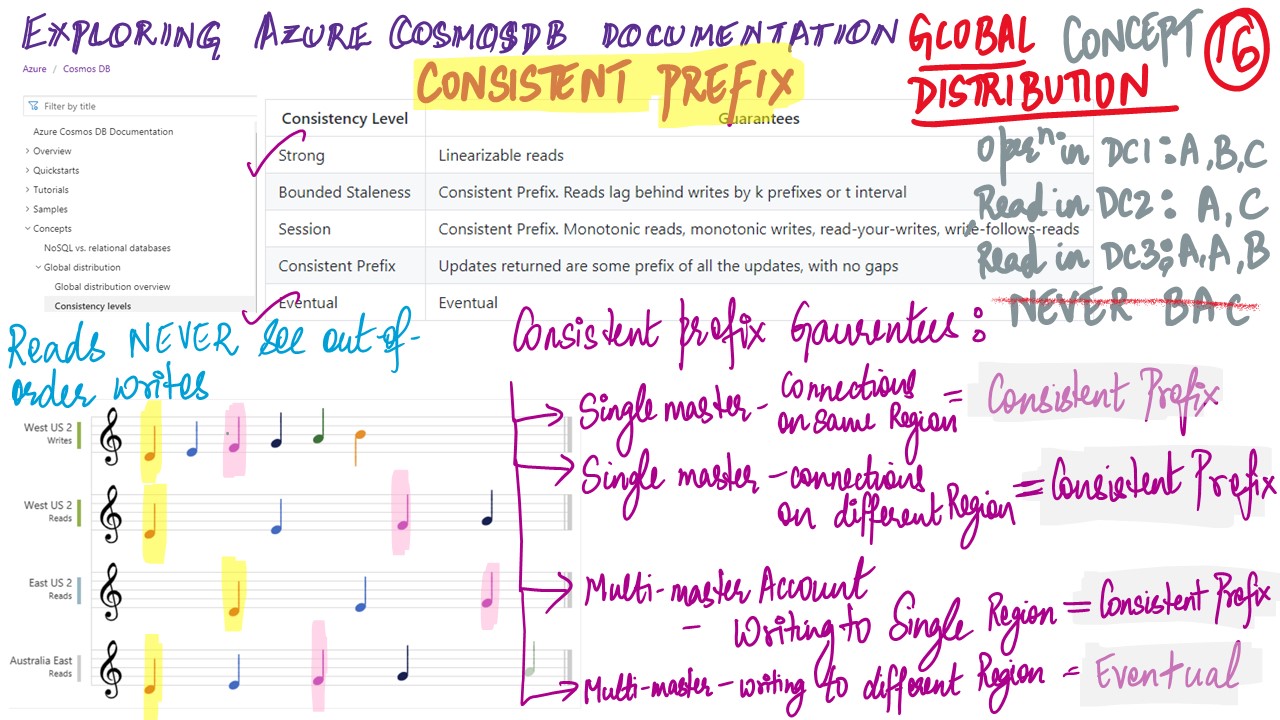 EXPLORING AZURE COSMOSDB DOCUMENTATION
GLOBAL DISTRIBUTION
CONCEPT 16
CONSISTENT PREFIX
Azure / Cosmos DB
Filter by title
Azure Cosmos DB Documentation
Overview
Quickstarts
Tutorials
Samples
Concepts
NoSQL vs. relational databases
Global distribution
Global distribution overview
Consistency levels
Consistency Level Guarantees
Strong Linearizable reads
Bounded Staleness Consistent Prefix. Reads lag behind writes by k prefixes or t interval
Session Consistent Prefix. Monotonic reads, monotonic writes, read-your-writes, write-follows-reads
Consistent Prefix Updates returned are some prefix of all the updates, with no gaps
Eventual Eventual
Opern: in DC1: A, B, C
Read in DC2: A, C
Read in DC3: A, A, B
NEVER BAC
Reads NEVER See out-of-
order writes
West US 2
Writes
West US 2
Reads
East US 2
Reads
Australia East
Reads
Consistent prefix Gaurentees:
Single master - connections
on same Region = Consistent Prefix
Single master - connections
on different Region = Consistent Prefix
Multi-master Account
- Writing to Single Region = Consistent Prefix
Multi-master - writing to different Region = Eventual